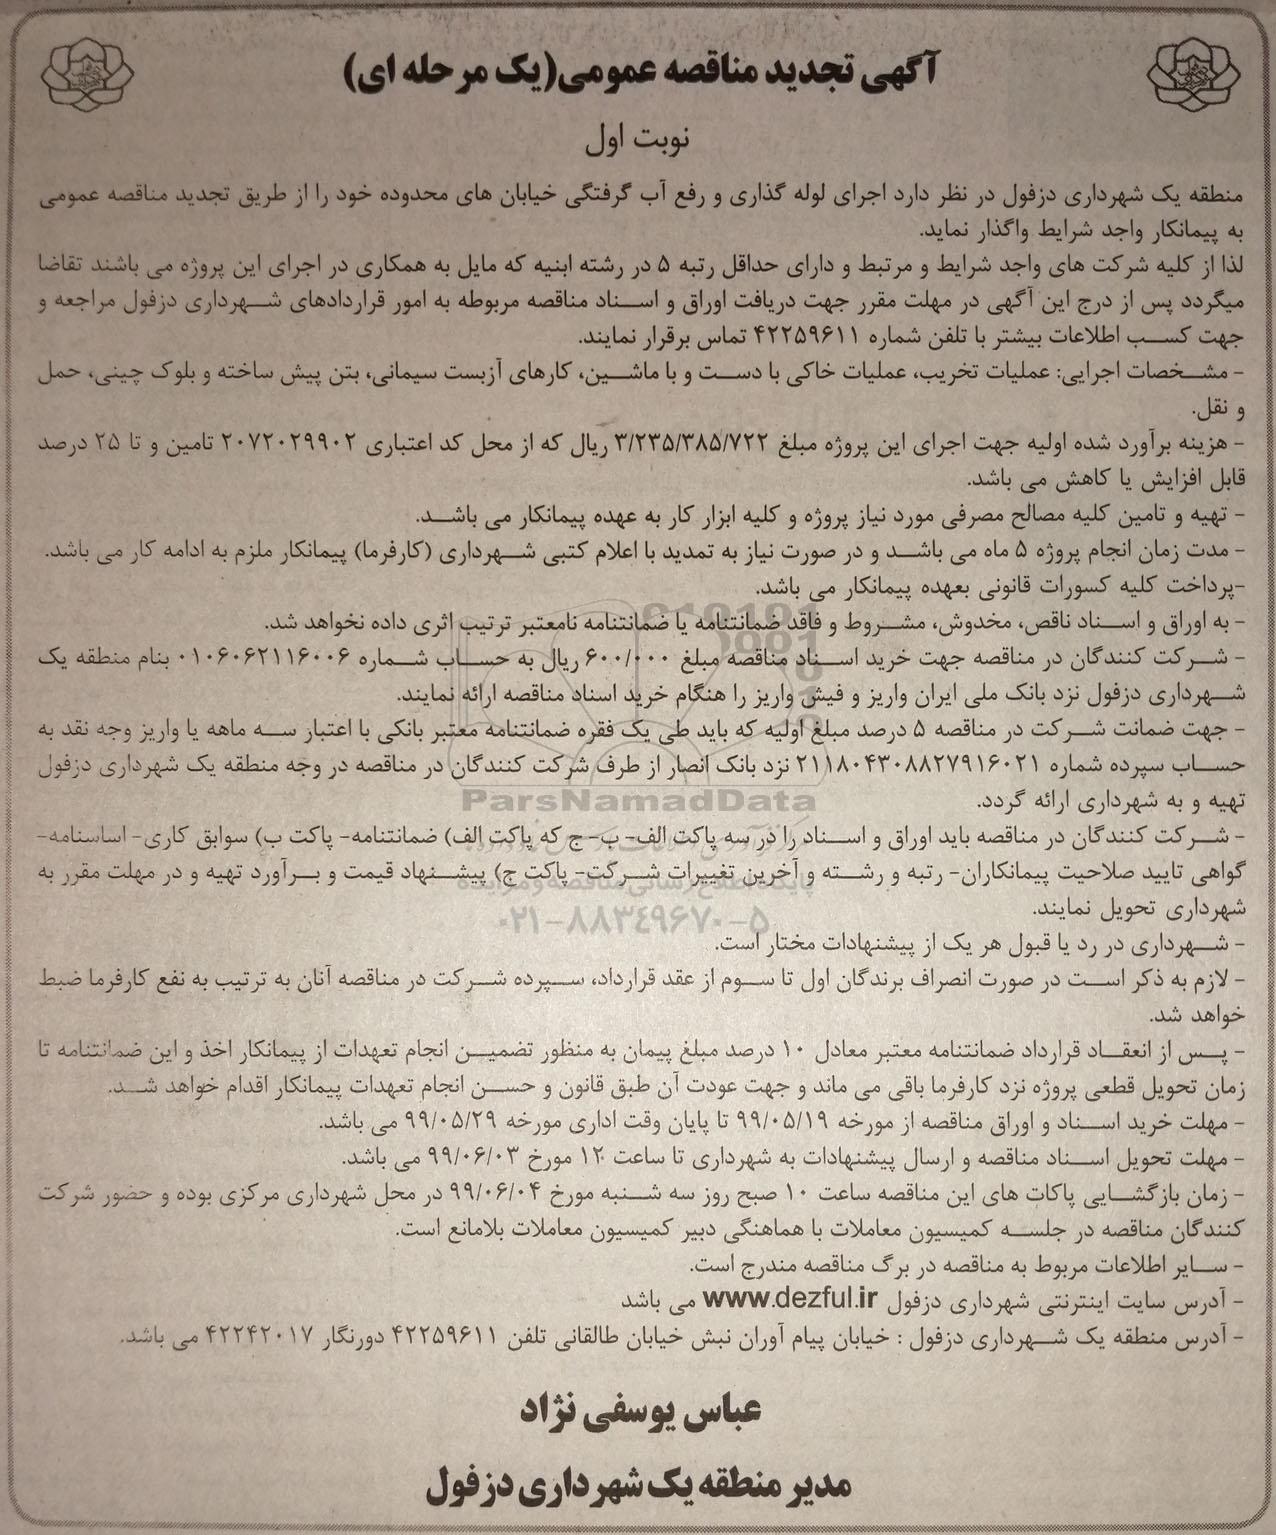 آگهی تجدید مناقصه عمومی(یک مرحله ای)
نوبت اول
منطقه یک شهرداری دزفول در نظر دارد اجرای لوله گذاری و رفع آب گرفتگی خیابان های محدوده خود را از طریق تجدید مناقصه عمومی
به پیمانکار واجد شرایط واگذار نماید.
لذا از کلیه شرکت های واجد شرایط و مرتبط و دارای حداقل رتبه ۵ در رشته ابنیه که مایل به همکاری در اجرای این پروژه می باشند تقاضا
میگردد پس از درج این آگهی در مهلت مقرر جهت دریافت اوراق و اسناد مناقصه مربوطه به امور قراردادهای شهرداری دزفول مراجعه و
جهت کسب اطلاعات بیشتر با تلفن شماره ۴۲۲۵۹۶۱۱ تماس برقرار نمایند.
- مشخصات اجرایی: عملیات تخریب، عملیات خاکی با دست و با ماشین، کارهای آزبست سیمانی، بتن پیش ساخته و بلوک چینی، حمل
و نقل.
- هزینه برآورد شده اولیه جهت اجرای این پروژه مبلغ ۳/۲۳۵/۳۸۵/۷۲۲ ریال که از محل کد اعتباری ۲۰۷۲۰۲۹۹۰۲ تامین و تا ۲۵ درصد
قابل افزایش یا کاهش می باشد.
- تهیه و تامین کلیه مصالح مصرفی مورد نیاز پروژه و کلیه ابزار کار به عهده پیمانکار می باشد.
- مدت زمان انجام پروژه ۵ ماه می باشد و در صورت نیاز به تمدید با اعلام کتبی شهرداری (کارفرما) پیمانکار ملزم به ادامه کار می باشد.
-پرداخت کلیه کسورات قانونی بعهده پیمانکار می باشد.
- به اوراق و اسناد ناقص، مخدوش، مشروط و فاقد ضمانتنامه یا ضمانتنامه نامعتبر ترتیب اثری داده نخواهد شد.
- شرکت کنندگان در مناقصه جهت خرید اسناد مناقصه مبلغ ۶۰۰/۰۰۰ ریال به حساب شماره ۰۱۰۶۰۶۲۱۱۶۰۰۶ بنام منطقه یک
شهرداری دزفول نزد بانک ملی ایران واریز و فیش واریز را هنگام خرید اسناد مناقصه ارائه نمایند.
- جهت ضمانت شرکت در مناقصه ۵ درصد مبلغ اولیه که باید طی یک فقره ضمانتنامه معتبر بانکی با اعتبار سه ماهه یا واریز وجه نقد به
حساب سپرده شماره ۲۱۱۸۰۴۳۰۸۸۲۷۹۱۶۰۲۱ نزد بانک انصار از طرف شرکت کنندگان در مناقصه در وجه منطقه یک شهرداری دزفول
ParsNamadData
تهیه و به شهرداری ارائه گردد.
- شرکت کنندگان در مناقصه باید اوراق و اسناد را در سه پاکت الف- ب- ج که پاکت الف) ضمانتنامه- پاکت ب) سوابق کاری- اساسنامه-
گواهی تایید صلاحیت پیمانکاران- رتبه و رشته و آخرین تغییرات شرکت- پاکت ج) پیشنهاد قیمت و برآورد تهیه و در مهلت مقرر به
شهرداری تحویل نمایند.
۰۲۱-۸۸۳۴۹۶۷۰-۵
- شهرداری در رد یا قبول هر یک از پیشنهادات مختار است.
- لازم به ذکر است در صورت انصراف برندگان اول تا سوم از عقد قرارداد، سپرده شرکت در مناقصه آنان به ترتیب به نفع کارفرما ضبط
خواهد شد.
- پس از انعقاد قرارداد ضمانتنامه معتبر معادل ۱۰ درصد مبلغ پیمان به منظور تضمین انجام تعهدات از پیمانکار اخذ و این ضمانتنامه تا
زمان تحویل قطعی پروژه نزد کارفرما باقی می ماند و جهت عودت آن طبق قانون و حسن انجام تعهدات پیمانکار اقدام خواهد شد.
- مهلت خرید اسناد و اوراق مناقصه از مورخه ۹۹/۰۵/۱۹ تا پایان وقت اداری مورخه ۹۹/۰۵/۲۹ می باشد.
- مهلت تحویل اسناد مناقصه و ارسال پیشنهادات به شهرداری تا ساعت ۱۲ مورخ ۹۹/۰۶/۰۳ می باشد.
- زمان بازگشایی پاکات های این مناقصه ساعت ۱۰ صبح روز سه شنبه مورخ ۹۹/۰۶/۰۴ در محل شهرداری مرکزی بوده و حضور شرکت
کنندگان مناقصه در جلسه کمیسیون معاملات با هماهنگی دبیر کمیسیون معاملات بلامانع است.
- سایر اطلاعات مربوط به مناقصه در برگ مناقصه مندرج است.
- آدرس سایت اینترنتی شهرداری دزفول www.dezful.ir می باشد
- آدرس منطقه یک شهرداری دزفول : خیابان پیام آوران نبش خیابان طالقانی تلفن ۴۲۲۵۹۶۱۱ دورنگار ۴۲۲۴۲۰۱۷ می باشد.
عباس یوسفی نژاد
مدیر منطقه یک شهرداری دزفول